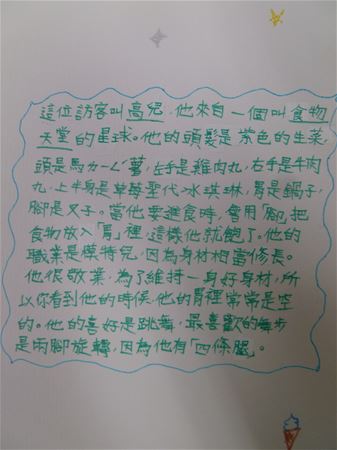 這位訪客叫高兒,他來自一個叫食物
天堂的星球。他的頭髮是紫色的生菜,
頭是馬ㄌㄧㄥˊ薯,左手是雞肉丸,右手是牛肉
丸,上半身是草莓聖代冰琪琳,胃是鍋子,
腳是叉子。當他要進食時,會用「腳」把
食物放入「胃」裡,這樣他就飽了。他的
職業是模特兒,因為身材相當修長。
他很敬業,為了維持一身好身材,所
以你看到他的時候,他的胃裡常常是空
的。他的喜好是跳舞,最喜歡的舞步
是兩腳旋轉,因為他有「四條腿」。